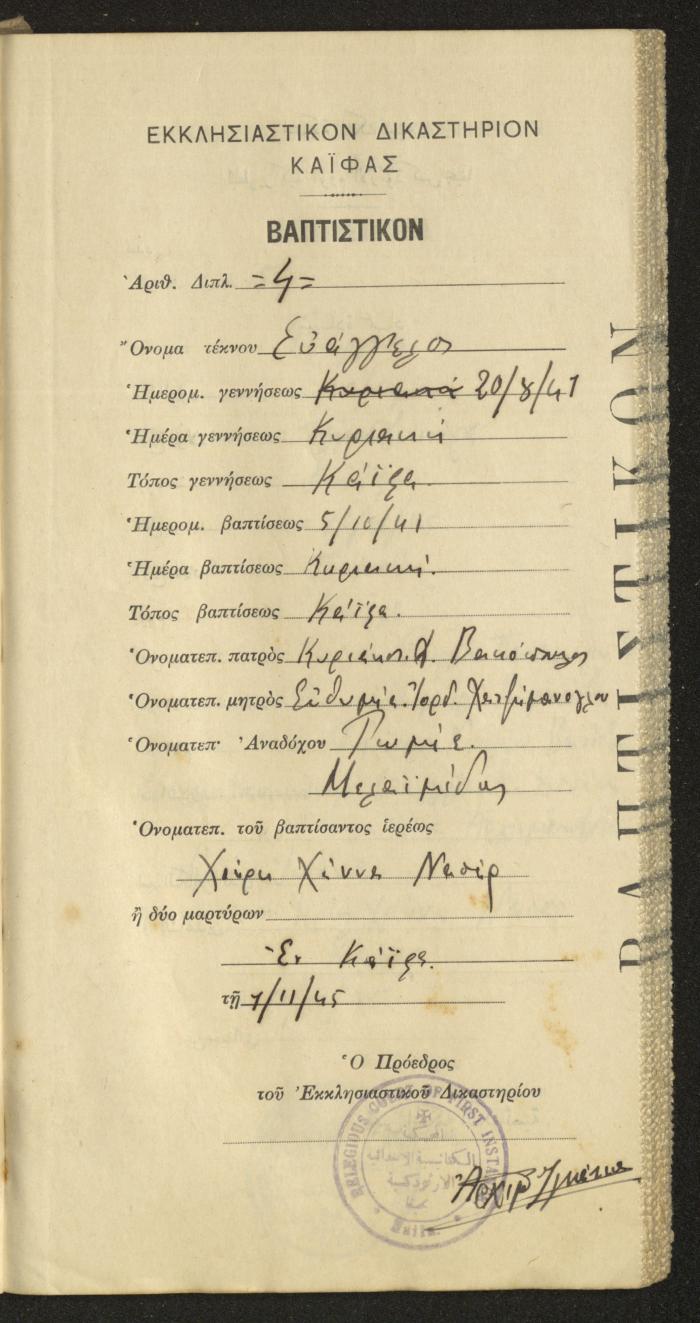 ΕΚΚΛΗΣΙΑΣΤΙΚΟΝ ΔΙΚΑΣΤΗΡΙΟΝ
ΚΑΪΦΑΣ
ΒΑΠΤΙΣΤΙΚΟΝ
Ἀριθ. Διπλ. =4=
Ὄνομα τέκνου Εὐάγγελος
Ἡμερομ. γεννήσεως Κυριακή 20/8/41
Ἡμέρα γεννήσεως Κυριακή
Τόπος γεννήσεως Κάϊφα
Ἡμερομ. βαπτίσεως 5/10/41
Ἡμέρα βαπτίσεως Κυριακή.
Τόπος βαπτίσεως Κάϊφα.
Ὀνοματεπ. πατρὸς Κυριάκος
Ὀνοματεπ. μητρὸς Εὐθυμία Ἰορδ.
Ὀνοματεπ· Ἀναδόχου
Ὀνοματεπ. τοῦ βαπτίσαντος ἱερέως
Χούρι Χάννα Νασίρ
ἢ δύο μαρτύρων
Ἐν Κάϊφα.
τῇ 7/11/45
Ὁ Πρόεδρος
τοῦ Ἐκκλησιαστικοῦ Δικαστηρίου
RELEGIOUS COURT OF FIRST INSTA
Haifa.
ΒΑΠΤΙΣΤΙΚΟΝ